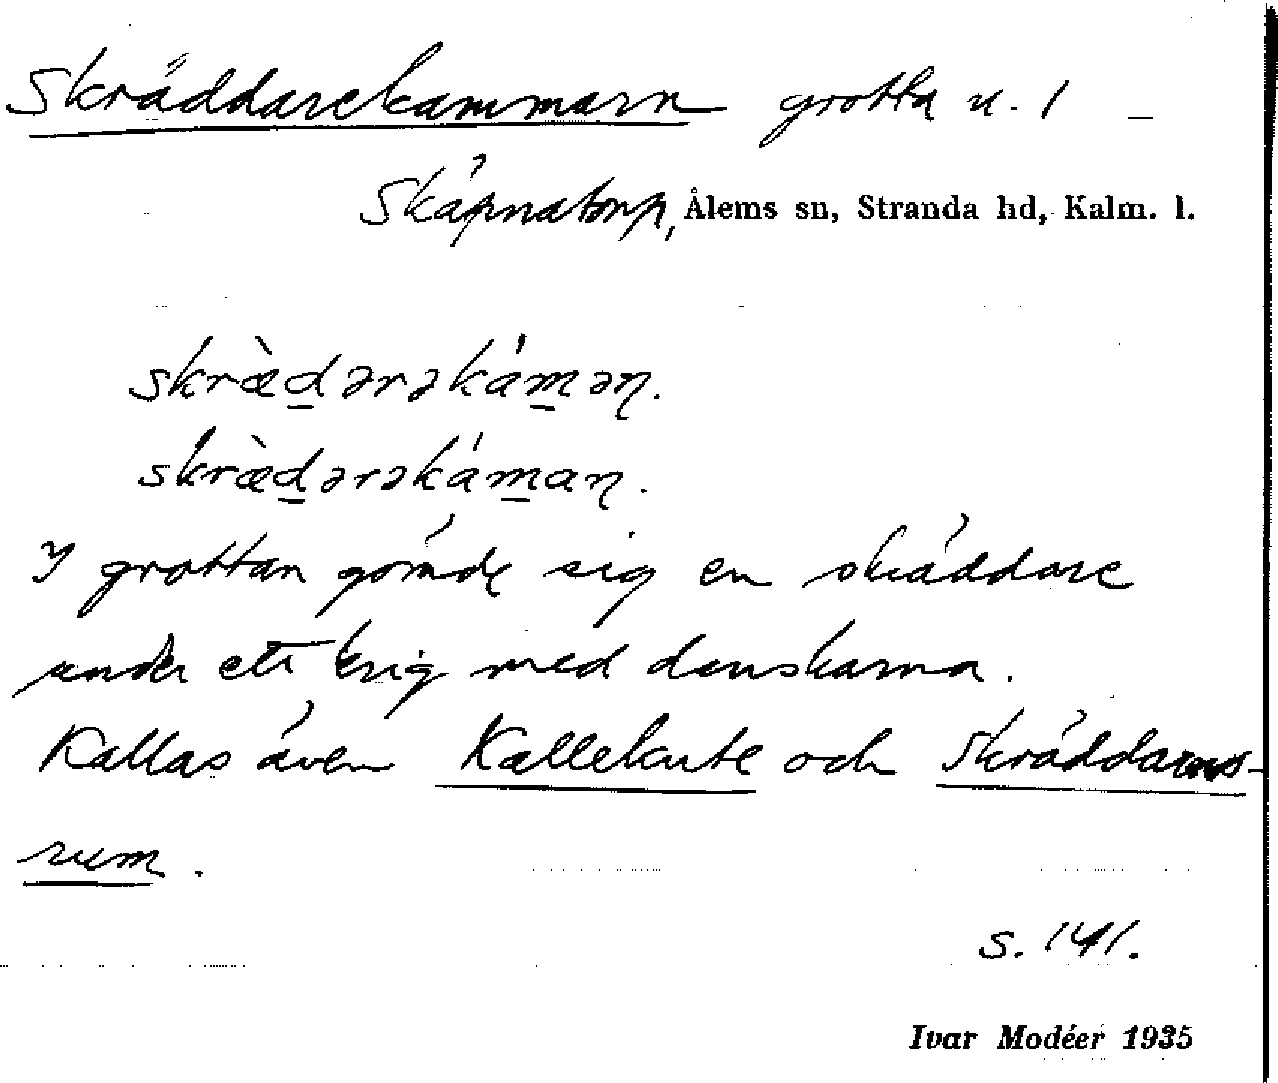 Skräddarekammarn grotta u. 1 –
Skäpnatorp, Ålems sn, Stranda hd, Kalm. l.
skræ̀d̲ərəkám̲əɳ.
skræ̀d̲ərəkám̲aɳ.
I grottan gömde sig en skäddare
under ett krig med danskarna.
Kallas även Kallekute och Skräddarens-
rum.
s. 141.
Ivar Modéer 1935